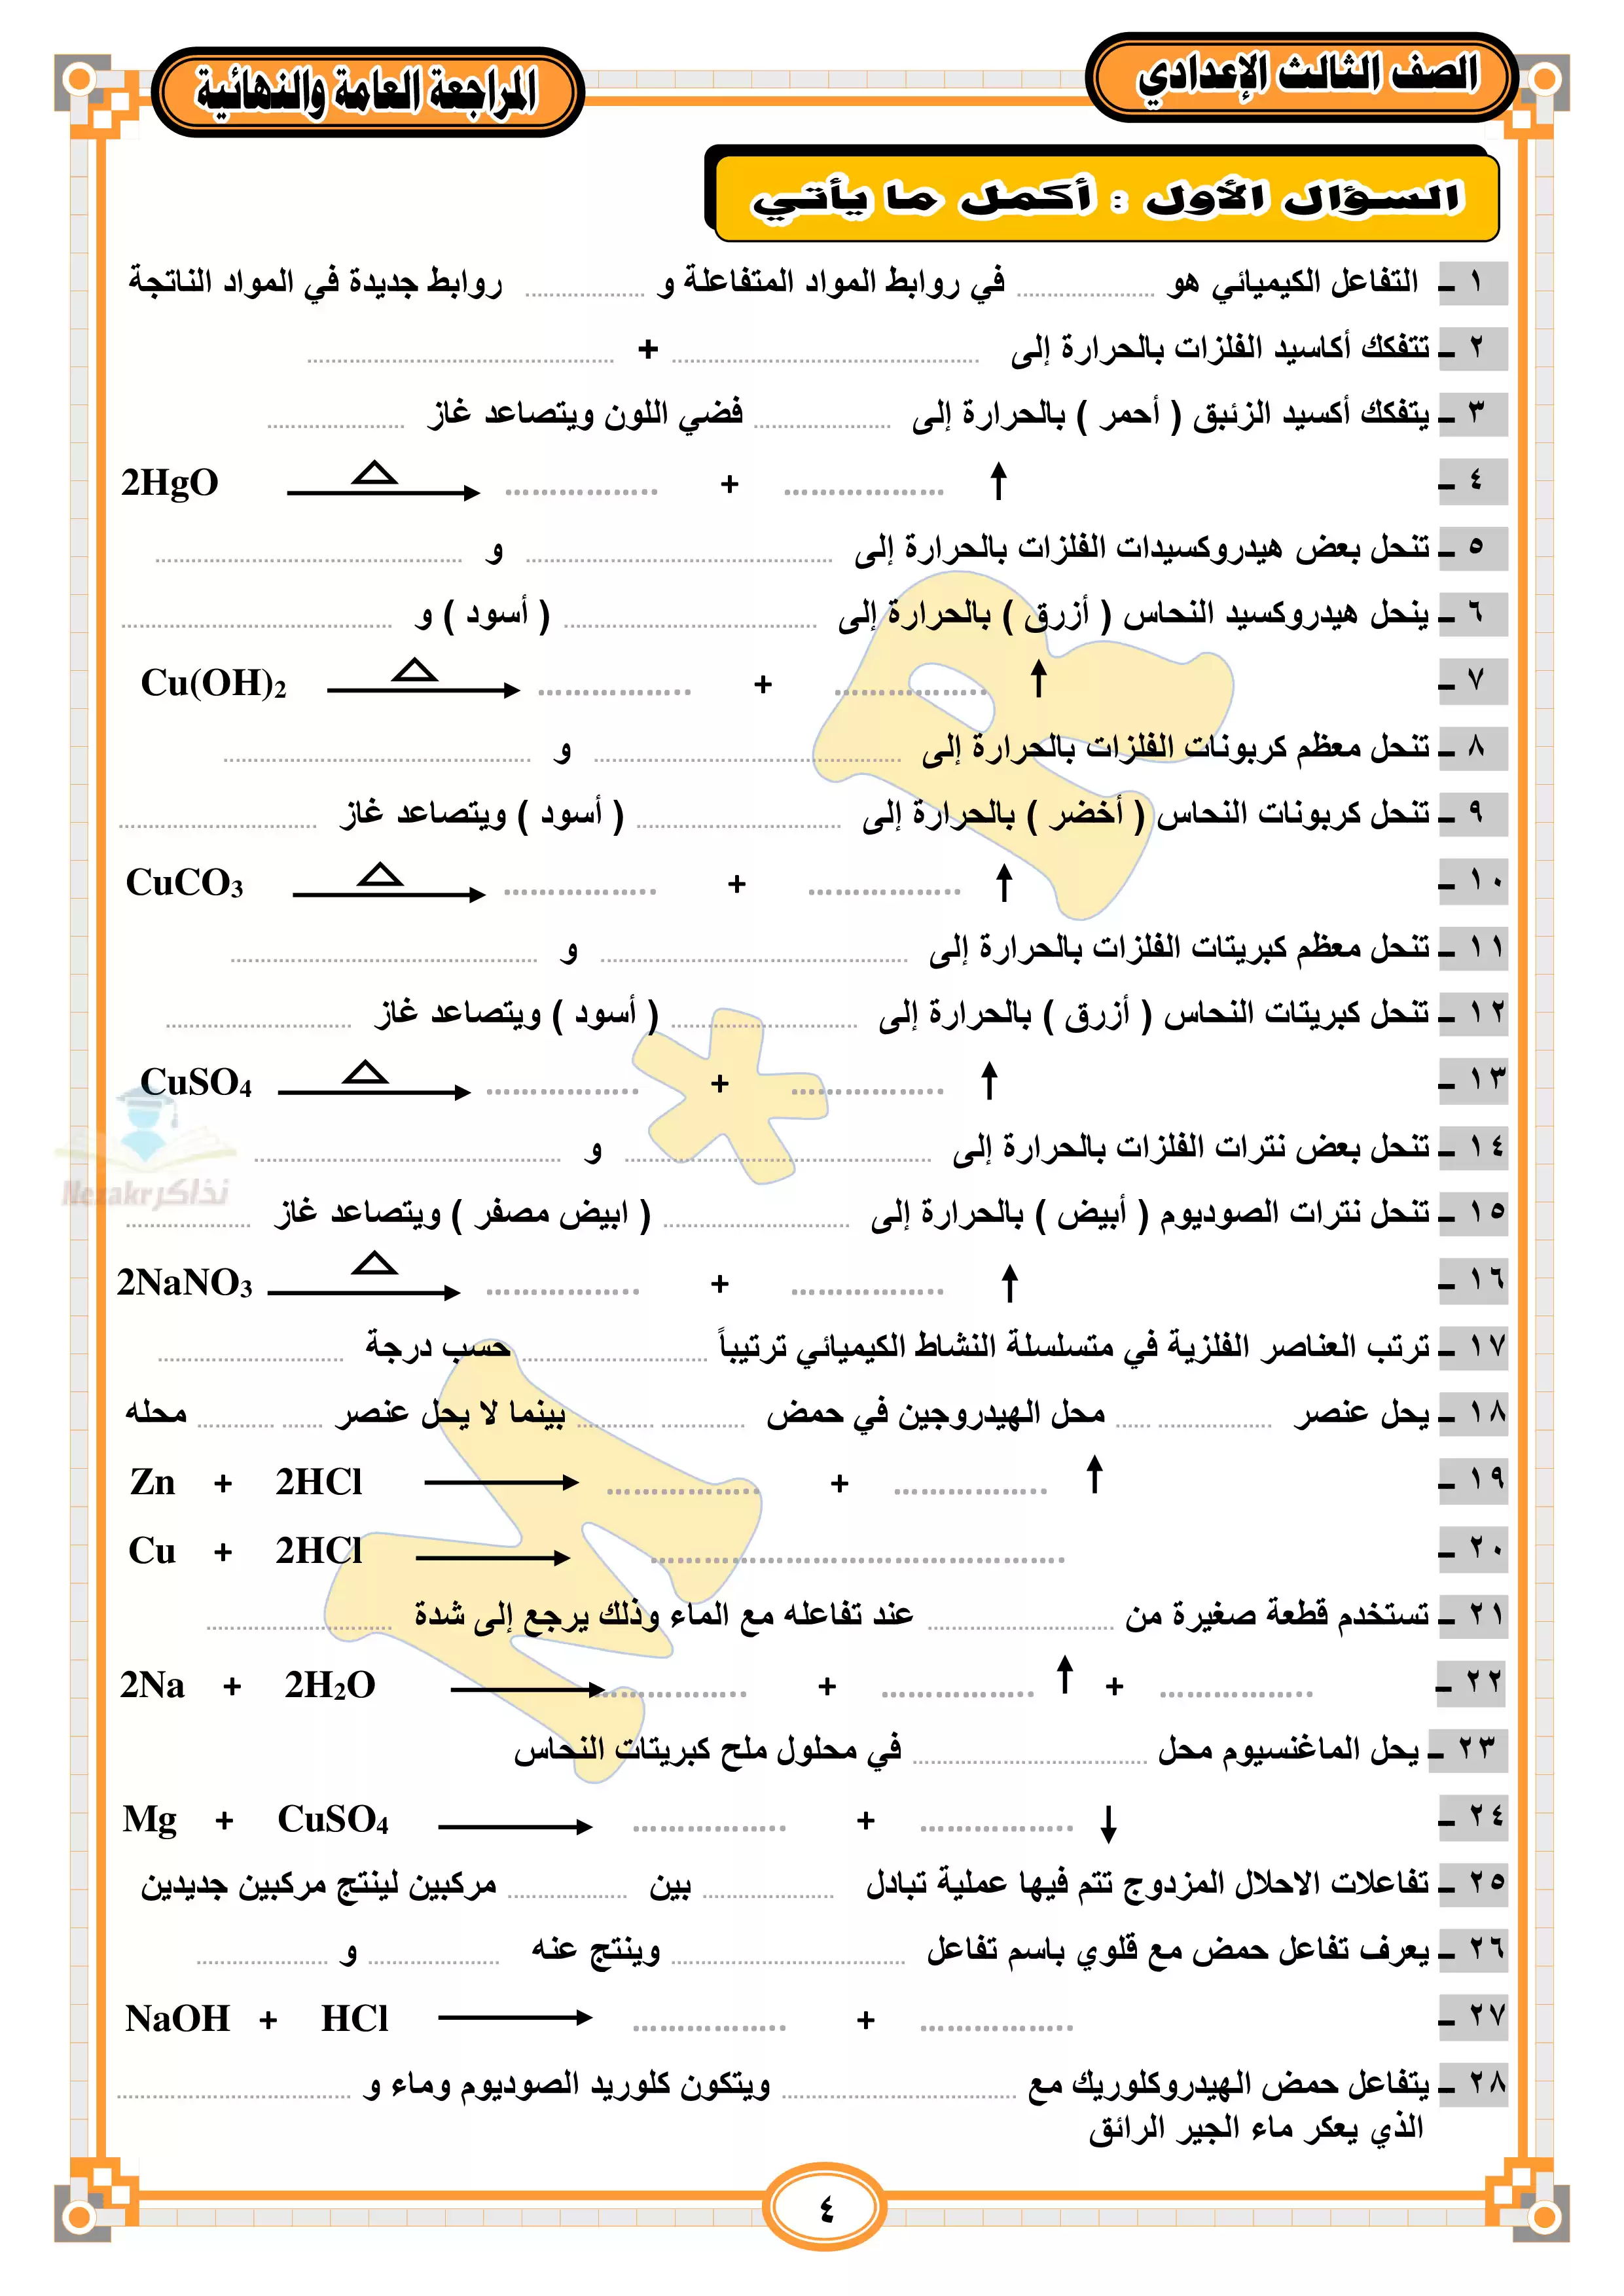 الصف الثالث الإعدادي
المراجعة العامة والنهائية
السؤال الأول : أكمل ما يأتي
١ ــ التفاعل الكيميائي هو ..................... في روابط المواد المتفاعلة و .................. روابط جديدة في المواد الناتجة
٢ ــ تتفكك أكاسيد الفلزات بالحرارة إلى ............................................... + ...............................................
٣ ــ يتفكك أكسيد الزئبق ( أحمر ) بالحرارة إلى ..................... فضي اللون ويتصاعد غاز .....................
٤ ــ 2HgO △→ .................. + .................. ↑
٥ ــ تنحل بعض هيدروكسيدات الفلزات بالحرارة إلى ............................................... و ...............................................
٦ ــ ينحل هيدروكسيد النحاس ( أزرق ) بالحرارة إلى ....................................... ( أسود ) و .........................................
٧ ــ Cu(OH)₂ △→ .................. + .................. ↑
٨ ــ تنحل معظم كربونات الفلزات بالحرارة إلى ............................................... و ...............................................
٩ ــ تنحل كربونات النحاس ( أخضر ) بالحرارة إلى ............................... ( أسود ) ويتصاعد غاز ..............................
١٠ ــ CuCO₃ △→ .................. + .................. ↑
١١ ــ تنحل معظم كبريتات الفلزات بالحرارة إلى ............................................... و ...............................................
١٢ ــ تنحل كبريتات النحاس ( أزرق ) بالحرارة إلى ............................ ( أسود ) ويتصاعد غاز ............................
١٣ ــ CuSO₄ △→ .................. + .................. ↑
١٤ ــ تنحل بعض نترات الفلزات بالحرارة إلى ............................................... و ...............................................
نذاكر Nezakr
١٥ ــ تنحل نترات الصوديوم ( أبيض ) بالحرارة إلى ............................ ( ابيض مصفر ) ويتصاعد غاز ...................
١٦ ــ 2NaNO₃ △→ .................. + .................. ↑
١٧ ــ ترتب العناصر الفلزية في متسلسلة النشاط الكيميائي ترتيباً ............................ حسب درجة ............................
١٨ ــ يحل عنصر ................. ..... محل الهيدروجين في حمض ............. ............ بينما لا يحل عنصر ...... ............ محله
١٩ ــ Zn + 2HCl → .................. + .................. ↑
٢٠ ــ Cu + 2HCl → ................................................
٢١ ــ تستخدم قطعة صغيرة من ............................ عند تفاعله مع الماء وذلك يرجع إلى شدة ............................
٢٢ ــ 2Na + 2H₂O → .................. + .................. ↑ + ..................
٢٣ ــ يحل الماغنسيوم محل .................................... في محلول ملح كبريتات النحاس
٢٤ ــ Mg + CuSO₄ → .................. + .................. ↓
٢٥ ــ تفاعلات الاحلال المزدوج تتم فيها عملية تبادل .................... بين .................. مركبين لينتج مركبين جديدين
٢٦ ــ يعرف تفاعل حمض مع قلوي باسم تفاعل .................................... وينتج عنه .................... و ....................
٢٧ ــ NaOH + HCl → .................. + ..................
٢٨ ــ يتفاعل حمض الهيدروكلوريك مع .................................... ويتكون كلوريد الصوديوم وماء و ....................................
الذي يعكر ماء الجير الرائق
٤